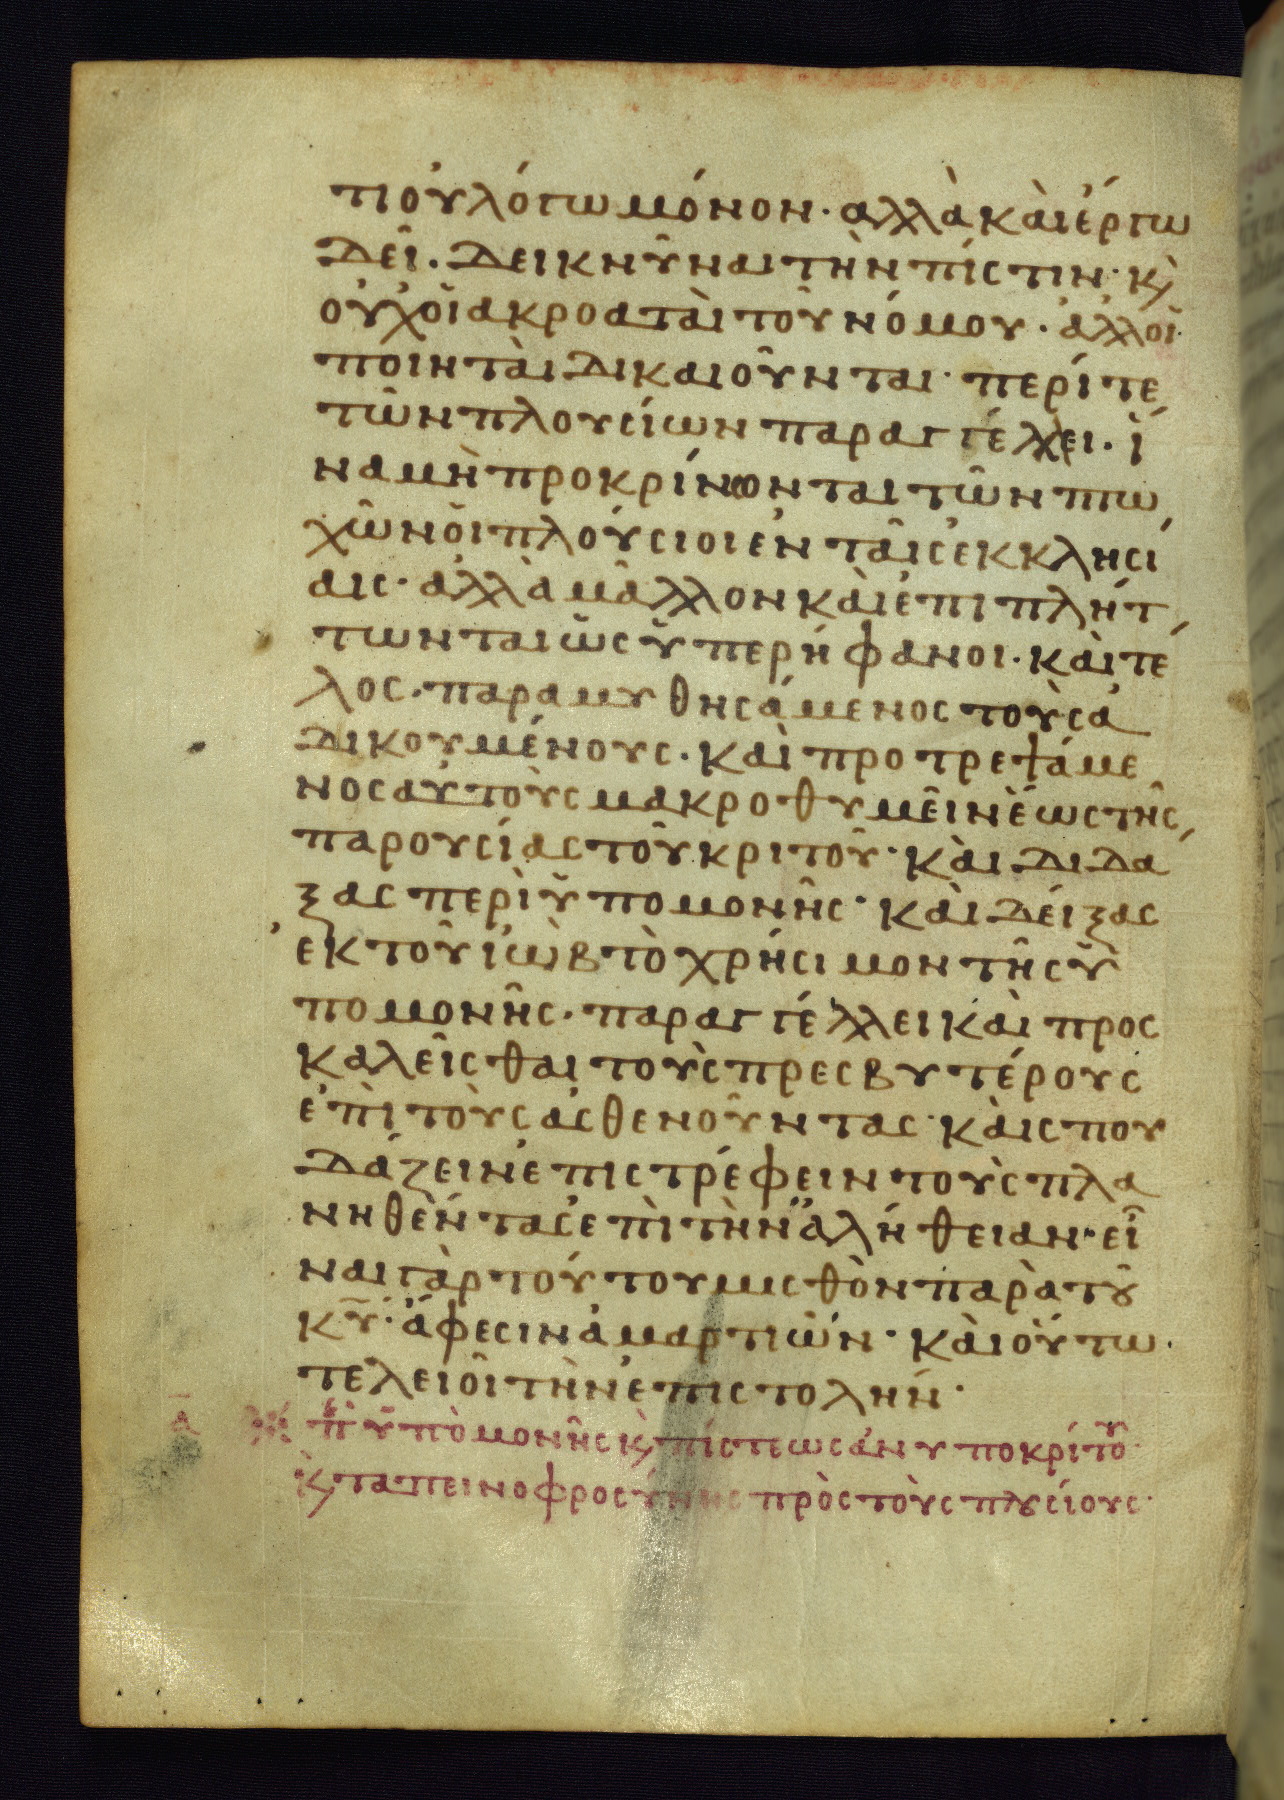 τι οὐ λόγω μόνον· αλλὰ καὶ έργω
δεῖ. δεικνῦναι τὴν πίςτιν· κ̀
οὐχ οἵ ακροαταὶ τοῦ νόμου. ἀλλοἵ
ποιηταὶ δικαιοῦνται· περί τε
τῶν πλουςίων παραγγέλλει. ἵ
να μὴ προκρίνωνται τῶν πτω
χῶν ὁι πλούςιοι ἐν ταῖς ἐκκληςί
αις· ἀλλὰ μᾶλλον καὶ ἐπιπλήτ
τωνται ὡς ὑπερήφανοι. καὶ τε
λος. παραμυθηςάμενος τοὺς ἀ
δικουμένους. καὶ προτρεψάμε
νος αὐτοὺς μακροθυμεῖν ἕως τῆς
παρουςίας τοῦ κριτοῦ· καὶ διδα
ξας περὶ ὑπομονῆς· καὶ δείξας
ἐκ τοῦ ἰὼβ τὸ χρήςιμον τῆς ὑ
πομονῆς. παραγγέλλει καὶ προς
καλεῖςθαι τοὺς πρεςβυτέρους
ἐπὶ τοὺς ἀςθενοῦντας· καὶ ςπου
δάζειν ἐπιςτρέφειν τοὺς πλα
νηθέντας ἐπὶ τὴν ἀλήθειαν· εἶ
ναι γὰρ τούτου μιςθὸν παρὰ τȣ͂
κ̅υ̅· ἄφεςιν ἁμαρτιῶν· καὶ οὕτω.
τελειοῖ τὴν ἐπιςτολήν·
α̅ π̀ ὑπομονῆς κ̀ πίςτεως ἀνυποκρίτου·
κ̀ ταπεινοφροςύνης πρὸς τοὺς πλȣςίους·